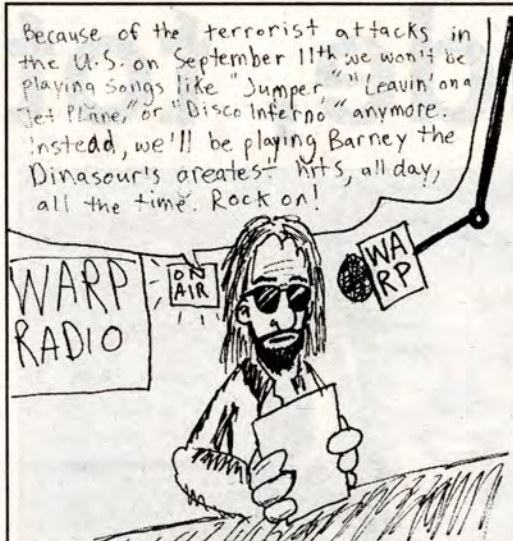 Because of the terrorist attacks in
the U.S. on September 11th we won't be
playing songs like "Jumper," "Leavin' on a
Jet Plane," or "Disco Inferno" anymore.
Instead, we'll be playing Barney the
Dinasour's greatest hits, all day,
all the time. Rock on!
ON
AIR
WA
RP
WARP
RADIO